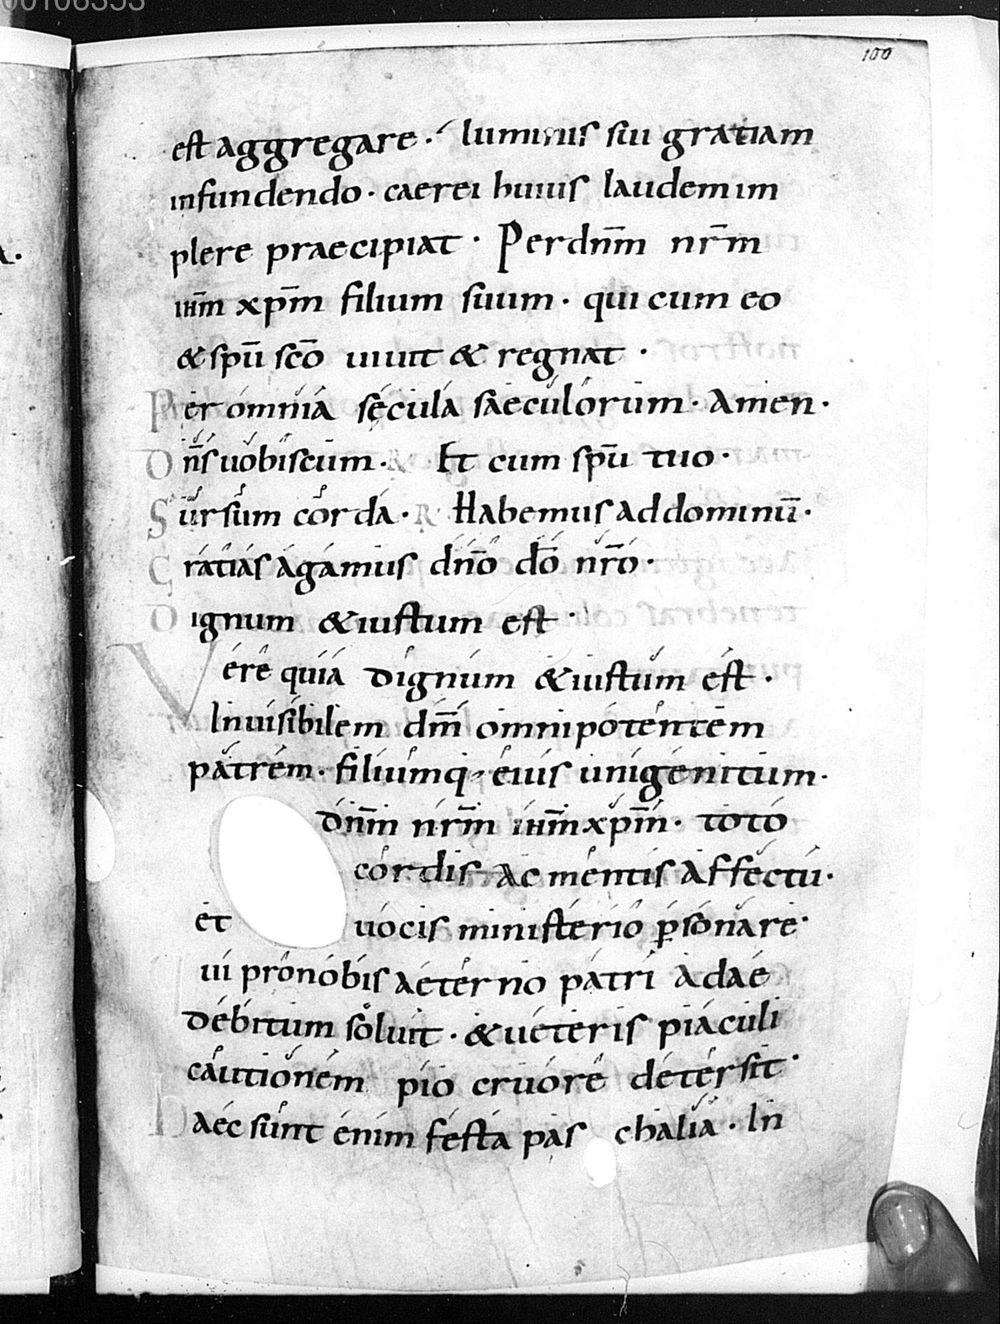 00106353
100
est aggregare · luminis sui gratiam
infundendo · caerei huius laudem im
plere praecipiat · Per dnm̄ nr̄m
ihm̄ xpm̄ filium suum · qui cum eo
& spū scō uiuit & regnat ·
Per omnia secula saeculorum · Amen ·
Dn̄s uobiscum · R Et cum spū tuo ·
Sursum corda · R Habemus ad dominū ·
Gratias agamus dnō dō nrō ·
Dignum & iustum est ·
Vere quia dignum & iustum est ·
Inuisibilem dm̄ omnipotentem
patrem · filiumq; eius unigenitum ·
dnm̄ nrm̄ ihm̄ xpm̄ · toto
cordis ac mentis affectu ·
et uocis ministerio p̱sonare ·
ui pro nobis aeterno patri adae
debitum soluit · & ueteris piaculi
cautionem pio cruore detersit ·
Haec sunt enim festa paschalia · In